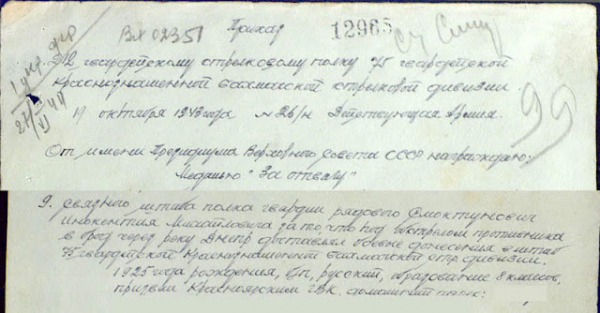 Вх 02351 Приказ 12965
212 гвардейскому стрелковому полку 75 гвардейской
Краснознаменной Бахмачской стрелковой дивизии
19 октября 1943 года № 26/н Действующая Армия.
От имени Президиума Верховного Совета СССР награждаю:
Медалью "За отвагу"
99
9. Связного штаба полка гвардии рядового Смоктунович
Инокентия Михайловича за то, что под обстрелом противника
в брод через реку Днепр доставлял боевые донесения в штаб
75 гвардейской Краснознаменной Бахмачской стр. дивизии.
1925 года рождения, б/п, русский, образование 8 классов,
призван Красноярским ГВК. домашний